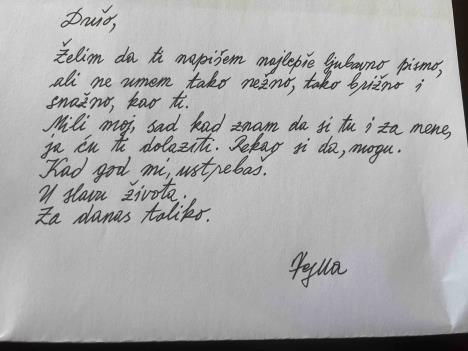 Dušo,
Želim da ti napišem najlepše ljubavno pismo,
ali ne umem tako nežno, tako brižno i
snažno, kao ti.
Mili moj, sad kad znam da si tu i za mene,
ja ću ti dolaziti. Rekao si da, mogu.
Kad god mi, ustrebaš.
U slavu života.
Za danas toliko.